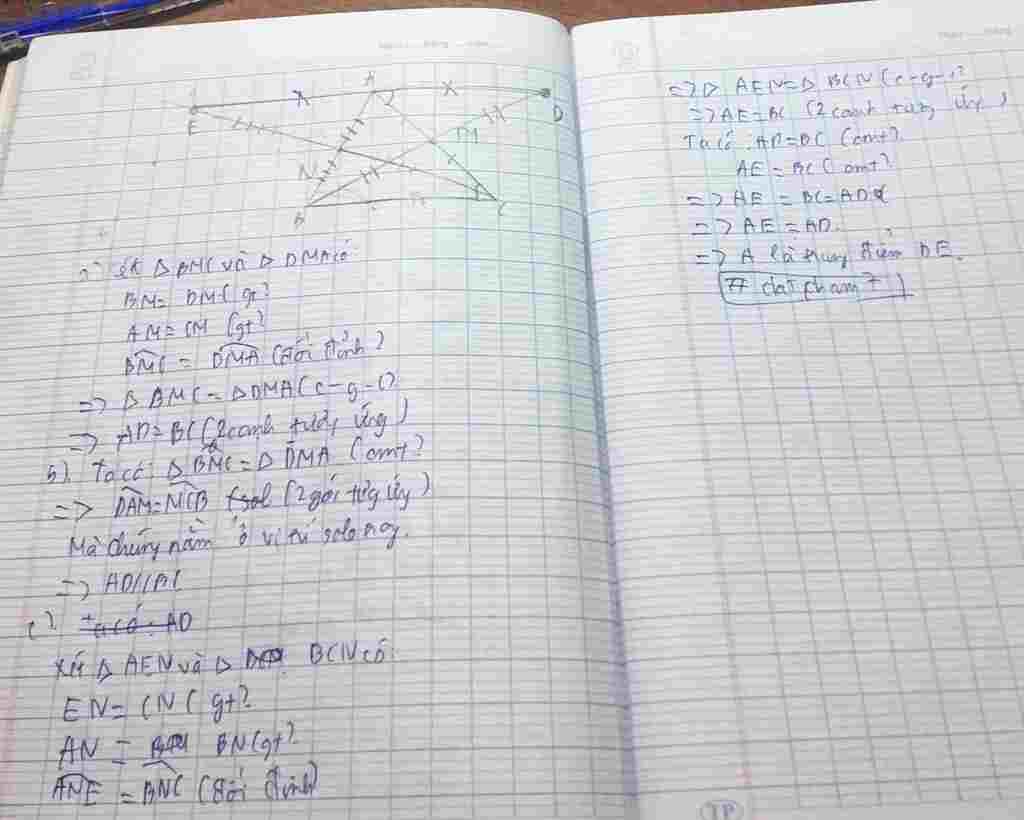 E
A
D
M
N
B
C
a) Xét △ BMC và △ DMA có
BM = DM (gt)
AM = CM (gt)
BMC = DMA (đối đỉnh)
=> △ BMC = △ DMA (c-g-c)
=> AD = BC (2 cạnh tương ứng)
b). Ta có: △ BMC = △ DMA (cmt)
=> DAM = MCB (2 góc tương ứng)
Mà chúng nằm ở vị trí solo nay.
=> AD // BC
c) Ta có: AD
Xét △ AEN và △ BCN có:
EN = CN (gt)
AN = BN (gt)
ANE = BNC (đối đỉnh)
=> △ AEN = △ BCN (c-g-c)
=> AE = BC (2 cạnh tương ứng)
Ta có: AD = BC (cmt)
AE = BC (cmt)
=> AE = BC = AD
=> AE = AD.
=> A là trung điểm DE.